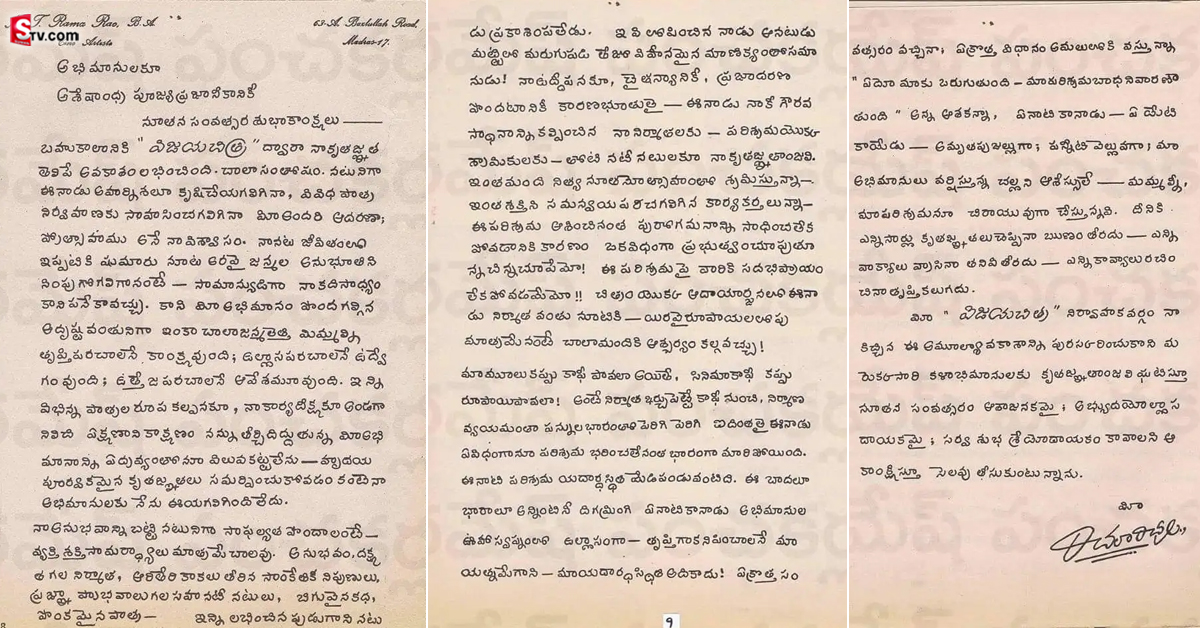 STv.com
T. Rama Rao, B.A
Cine Artiste
63-A, Bazlullah Road,
Madras-17.
అభిమానులకూ
అశేషాంధ్ర పూజ్యప్రజానీకానికీ
నూతన సంవత్సర శుభాకాంక్షలు ——
బహుకాలానికి "విజయచిత్ర" ద్వారా నాకృతజ్ఞత
తెలిపే అవకాశం లభించింది. చాలా సంతోషం. నటునిగా
ఈనాడు అహర్నిశలూ కృషిచేయగలిగినా, వివిధ పాత్ర
నిర్వహణకు సాహసించగలిగినా మీఅందరి ఆదరణా;
ప్రోత్సాహము అనే నావిశ్వాసం. నానట జీవితంలో
ఇప్పటికి షుమారు నూట అరవై జన్మల అనుభూతిని
సింపుగోగలిగానంటే — సామాన్యుడిగా నాకది సాధ్యం
కానిపనే కావచ్చు. కాని మీఅభిమానం పొంద గల్గిన
అదృష్టవంతునిగా ఇంకా చాలాజన్మలెత్తి మిమ్మల్ని
తృప్తిపరచాలనే కాంక్ష వుంది; ఉల్లాసపరచాలనే ఉద్వే
గంవుంది; ఉత్తేజపరచాలనే ఆవేశమూవుంది. ఇన్ని
విభిన్న పాత్రల రూప కల్పనకూ, నాకార్యదీక్షకూ అండగా
నిలిచి ఏక్షణానికాక్షణం నన్ను తీర్చిదిద్దుతున్న మీఅభి
మానాన్ని ఏద్రవ్యంతోనూ విలువకట్టలేను — హృదయ
పూర్వకమైన కృతజ్ఞతలు సమర్పించుకోవడం కంటెనా
అభిమానులకు నేను ఈయగలిగింది లేదు.
నాఅనుభవాన్ని బట్టి నటునిగా సాఫల్యత పొందాలంటే —
వ్యక్తి శక్తిసామర్థ్యాలు మాత్రమే చాలవు. అనుభవం, దక్ష
త గల నిర్మాత, ఆరితేరి కాకలు తీరిన సాంకేతిక నిపుణులు,
ప్రజ్ఞా ప్రాభవాలుగల సహనటీ నటులు, బిగువైనకథ,
పొంకమైనపాత్ర — ఇన్ని లభించినపుడుగాని నటు
డు ప్రకాశింపలేడు. ఇవి లోపించిన నాడు ఆనటుడు
మట్టిలో మరుగుపడి తేజో విహీనమైన మాణిక్యంతోసమా
నుడు! నాఉద్దీపనకూ, చైతన్యానికీ, ప్రజాదరణ
పొందటానికీ కారణభూతులై — ఈనాడు నాకీ గౌరవ
స్థానాన్నికల్పించిన నానిర్మాతలకు — పరిశ్రమయొక్క
శ్రామికులకు — తోటి నటీనటులకూ నాకృతజ్ఞతాంజలి.
ఇంతమంది నిత్య నూతనోత్సాహంతో శ్రమిస్తున్నా —
ఇంతశక్తిని సమన్వయపరిచగలిగిన కార్యకర్తలున్నా —
ఈపరిశ్రమ ఆశించినంత పురోగమనాన్ని సాధించలేక
పోవడానికి కారణం ఒకవిధంగా ప్రభుత్వంచూపుతూ
న్నచిన్నచూపేమో! ఈ పరిశ్రమపై వారికి సదభిప్రాయం
లేకపోవడమేమో!! చిత్రం యొక్క ఆదాయార్జనలో ఈనా
డు నిర్మాత వంతు నూటికి — యిరవైరూపాయలలోపు
మాత్రమేనంటే చాలామందికి ఆశ్చర్యం కల్గవచ్చు!
మామూలుకప్పు కాఫీ పావలా అయితే, సినిమాకాఫీ కప్పు
రూపాయిపావలా! అంటే నిర్మాత ఖర్చుపెట్టే కాఫీ నుంచి, నిర్మాణ
వ్యయమంతా పన్నులభారంతో పెరిగి పెరిగి ఐదింతలై ఈనాడు
ఏవిధంగానూ పరిశ్రమ భరించలేనంత భారంగా మారిపోయింది.
ఈనాటి పరిశ్రమ యదార్థస్థితి మేడిపండువంటిది. ఈ బాదలూ
భారాలూ అన్నింటినీ దిగమ్రింగి ఏనాటికానాడు అభిమానుల
ఊహాస్వప్నంలో ఉల్లాసంగా — తృప్తిగాకనిపించాలనే మా
యత్నమేగాని — మాయదార్థస్థితి అదికాదు! ఏక్రొత్త సం
9
వత్సరం వచ్చినా; ఏక్రొత్త విధానం అమలులోకి వస్తున్నా
"ఏదో మాకు జరుగుతుంది — మాపరిశ్రమబాధనివారణౌ
తుంది" అన్న ఆశకన్నా, ఏనాటి కానాడు — ఏ యేటి
కాయేడు — అమృతపుజల్లుగా; పన్నీటి వెల్లువగా; మా
అభిమానులు వర్షిస్తున్న చల్లని ఆశీస్సులే — మమ్మల్నీ,
మాపరిశ్రమనూ చిరాయువుగా చేస్తున్నవి. దీనికి
ఎన్నిసార్లు కృతజ్ఞతలుచెప్పినా ఋణం తీరదు — ఎన్ని
వాక్యాలు వ్రాసినా తనివి తీరదు — ఎన్నికావ్యాలు రచిం
చినా తృప్తికలుగదు.
మీ "విజయచిత్ర" నిర్వాహకవర్గం నా
కిచ్చిన ఈ అమూల్యావకాశాన్ని పురస్కరించుకొని మ
రొకసారి కళాభిమానులకు కృతజ్ఞతాంజలి ఘటిస్తూ
నూతన సంవత్సరం ఆశాజనకమై; అభ్యుదయోల్లాస
దాయకమై; సర్వ శుభ శ్రేయోదాయకం కావాలని ఆ
కాంక్షిస్తూ సెలవు తీసుకుంటున్నాను.
మీ